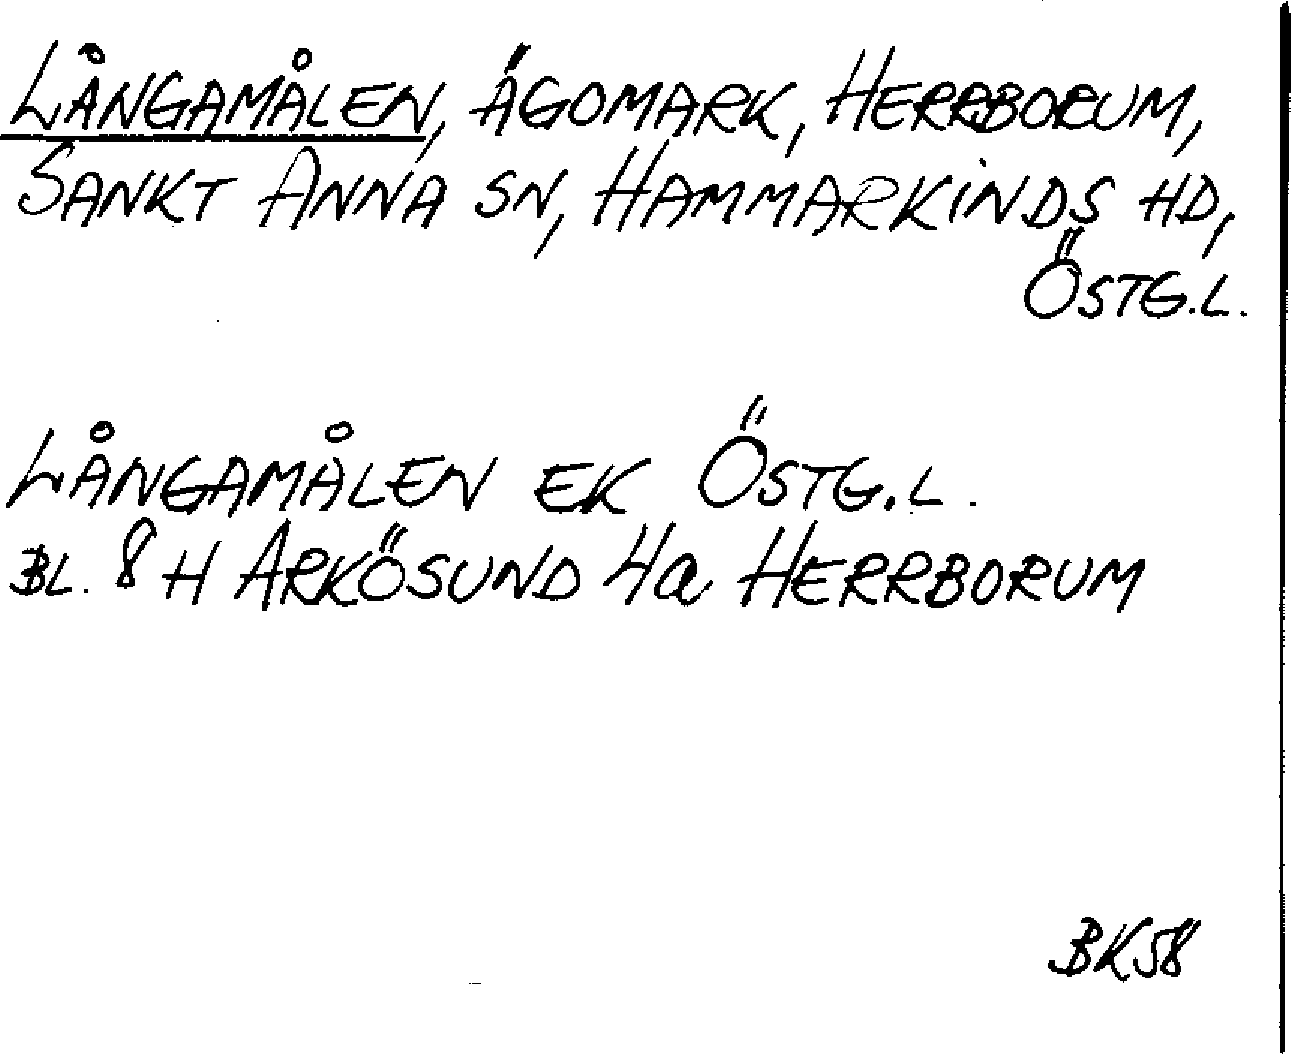 LÅNGAMÅLEN, ÄGOMARK, HERRBORUM,
SANKT ANNA SN, HAMMARKINDS HD,
ÖSTG.L.
LÅNGAMÅLEN EK ÖSTG.L.
BL. 8 H ARKÖSUND 4a HERRBORUM
BK58